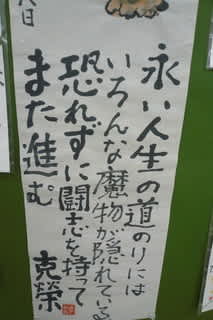 永い人生の道のりには
いろんな魔物が隠れている
恐れずに闘志を持って
また進む
克榮
日